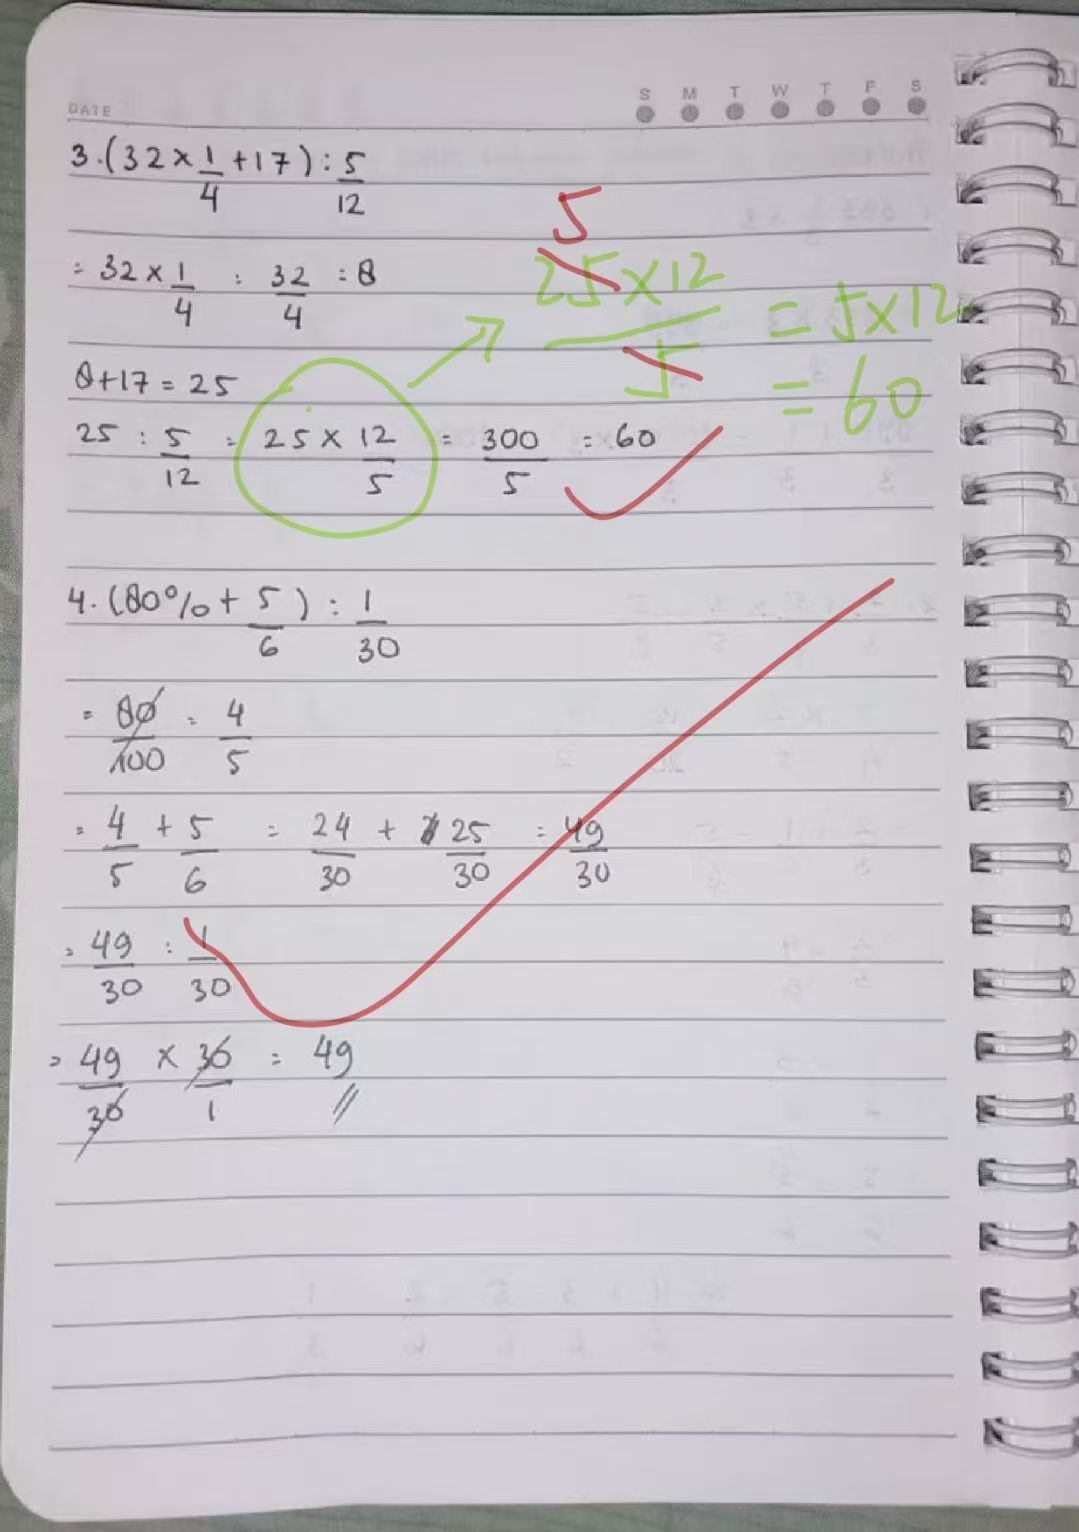 DATE S M T W T F S
3. (32 × 1/4 + 17) : 5/12
= 32 × 1/4 = 32/4 = 8
8 + 17 = 25
25 : 5/12 = 25 × 12/5 = 300/5 = 60
5
25 × 12 / 5 = 5 × 12
= 60
4. (80% + 5/6) : 1/30
= 80/100 = 4/5
= 4/5 + 5/6 = 24/30 + 25/30 = 49/30
= 49/30 : 1/30
= 49/30 × 30/1 = 49 //